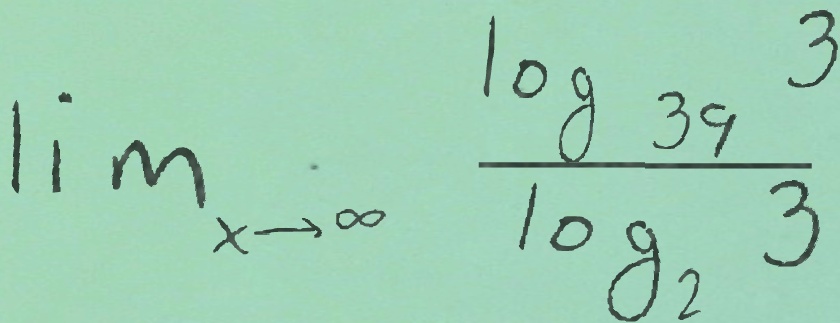 lim x→∞ log 39 3
log 2 3